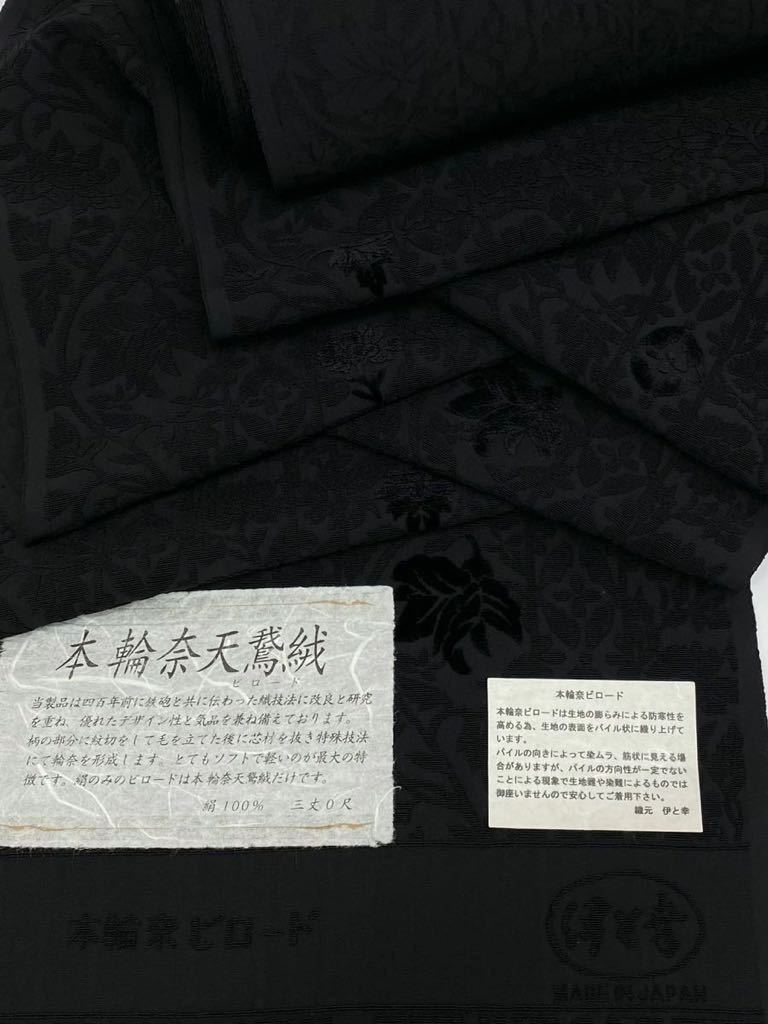 本輪奈天鵞絨
ビロード
当製品は四百年前に鉄砲と共に伝わった織技法に改良と研究
を重ね、優れたデザイン性と気品を兼ね備えております。
柄の部分に紋切をして毛を立てた後に芯材を抜き特殊技法
にて輪奈を形成します。とてもソフトで軽いのが最大の特
徴です。絹のみのビロードは本輪奈天鵞絨だけです。
絹100% 三丈0尺
本輪奈ビロード
本輪奈ビロードは生地の膨らみによる防寒性を
高める為、生地の表面をパイル状に織り上げて
います。
パイルの向きによって染ムラ、筋状に見える場
合がありますが、パイルの方向性が一定でない
ことによる現象で生地難や染難によるものでは
御座いませんので安心してご着用下さい。
織元 伊と幸
本輪奈ビロード
伊と幸
MADE IN JAPAN